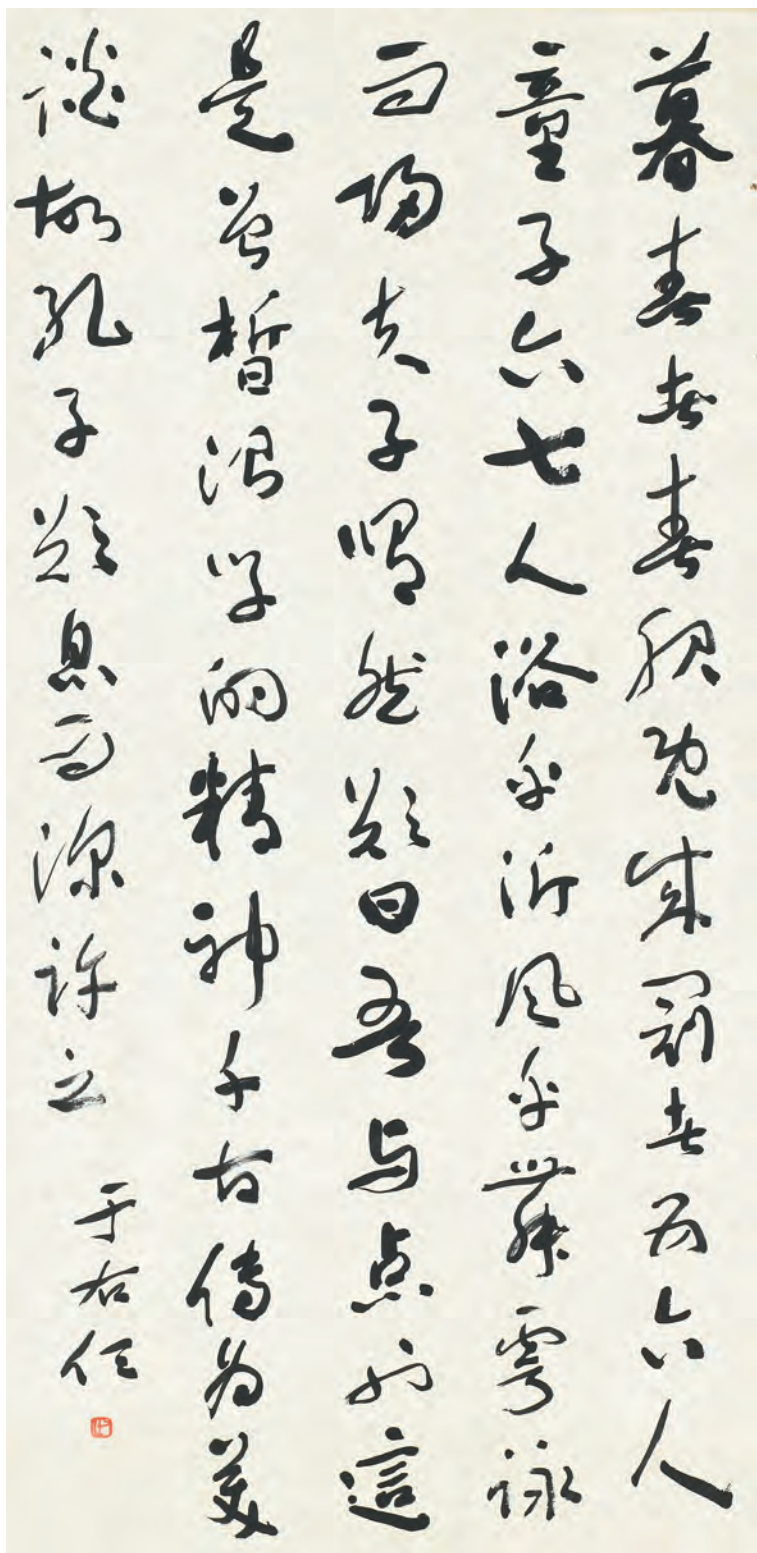 暮春者春服既成冠者五六人
童子六七人浴乎沂風乎舞雩詠
而歸夫子喟然歎曰吾与點也這
是曾晳治学的精神千古傳為美
談故孔子歎息而深許之
于右任